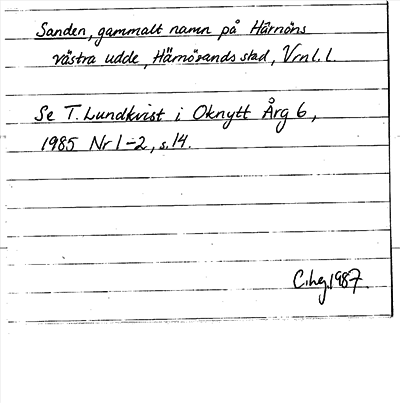 Sanden, gammalt namn på Härnöns
västra udde, Härnösands stad, Vrnl. l.
Se T. Lundkvist i Oknytt Årg 6,
1985 Nr 1-2, s. 14.
1987.